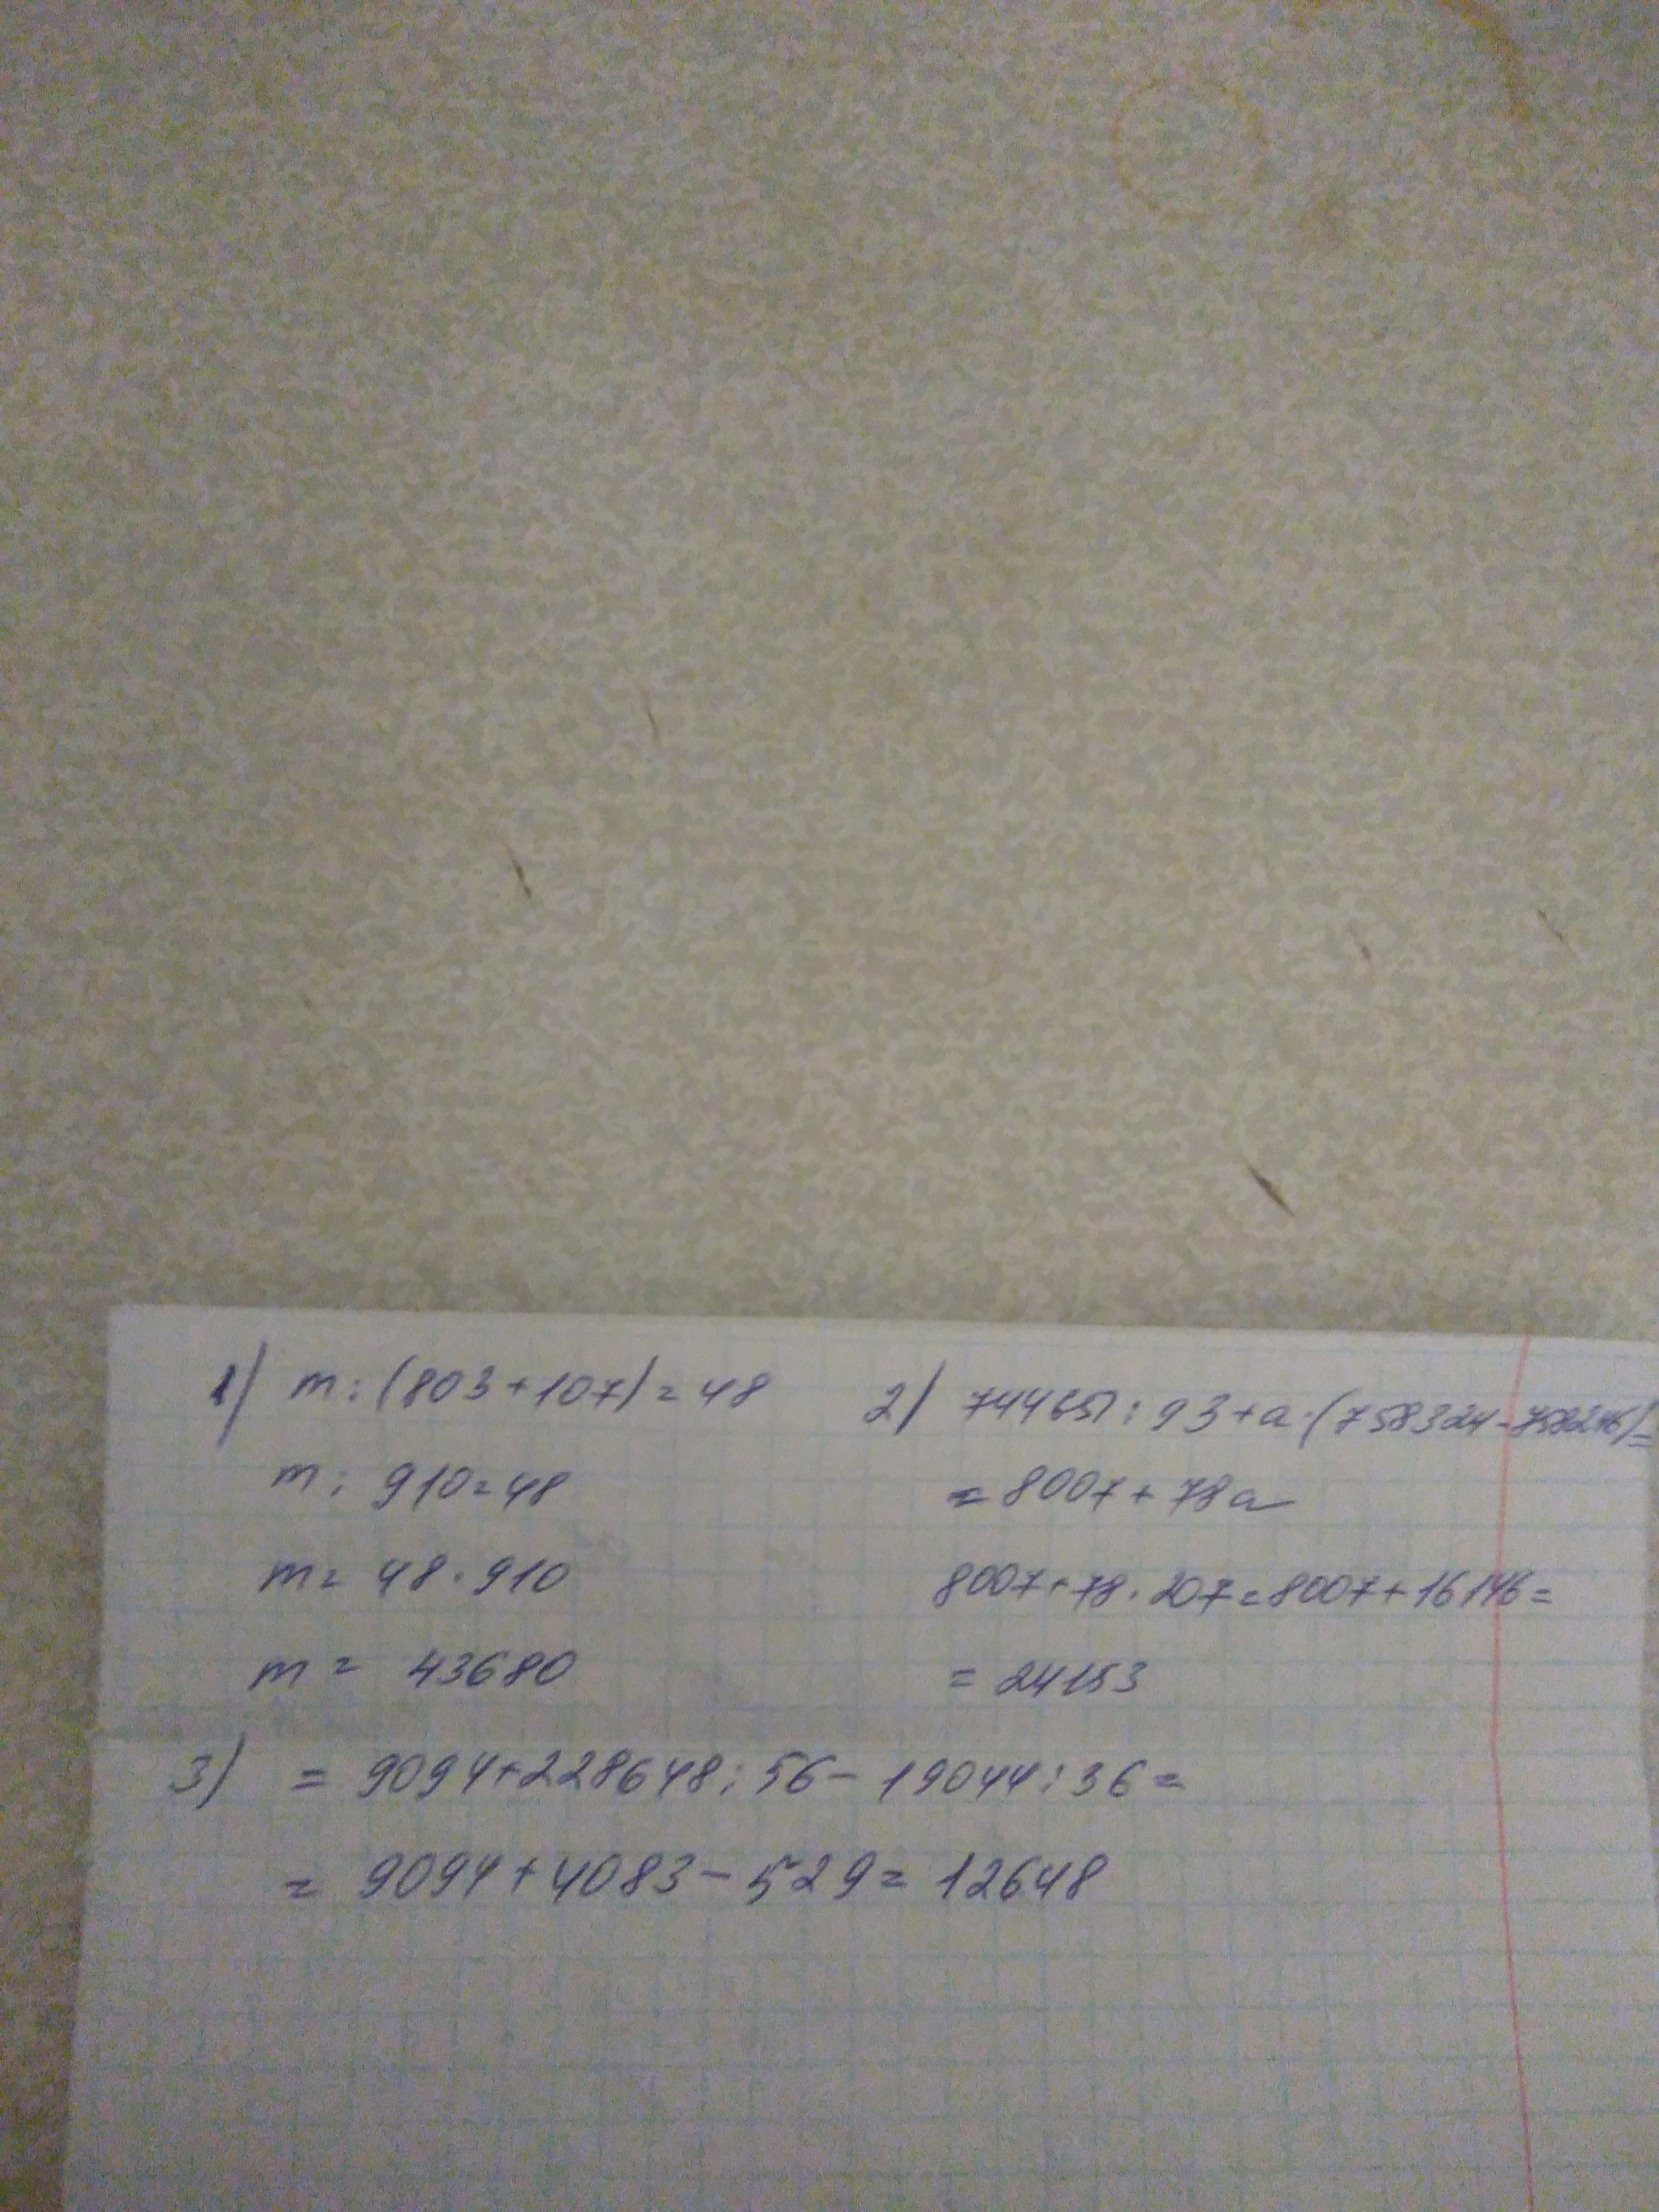 1) m : (803+107) = 48
m : 910 = 48
m = 48 · 910
m = 43680
2) 744651 : 93 + a · (758324 - 758246) =
= 8007 + 78a
8007 + 78 · 207 = 8007 + 16146 =
= 24153
3) = 9094 + 228648 : 56 - 19044 : 36 =
= 9094 + 4083 - 529 = 12648